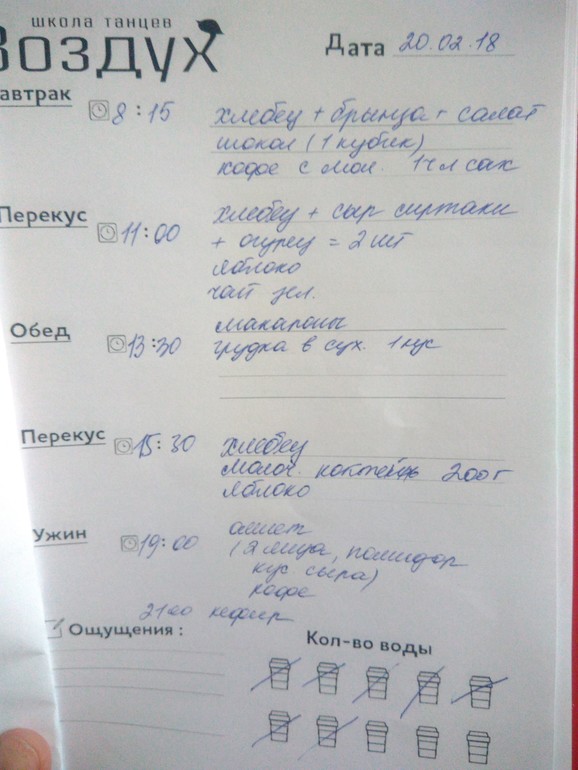 школа танцев
Воздух
Дата 20.02.18
автрак
8:15 хлебец + брынза + салат
шокол (1 кубик)
кофе с мол. 1 ч л сах
Перекус
11:00 хлебец + сыр сиртаки
+ огурец = 2 шт
яблоко
чай зел.
Обед
макароны
13:30 грудка в сух. 1 кус
Перекус
15:30 хлебец
молоч. коктейль 200 г
яблоко
Ужин
19:00 омлет
(2 яйца, помидор
кус сыра)
кофе
21:00 кефир
Ощущения :
Кол-во воды